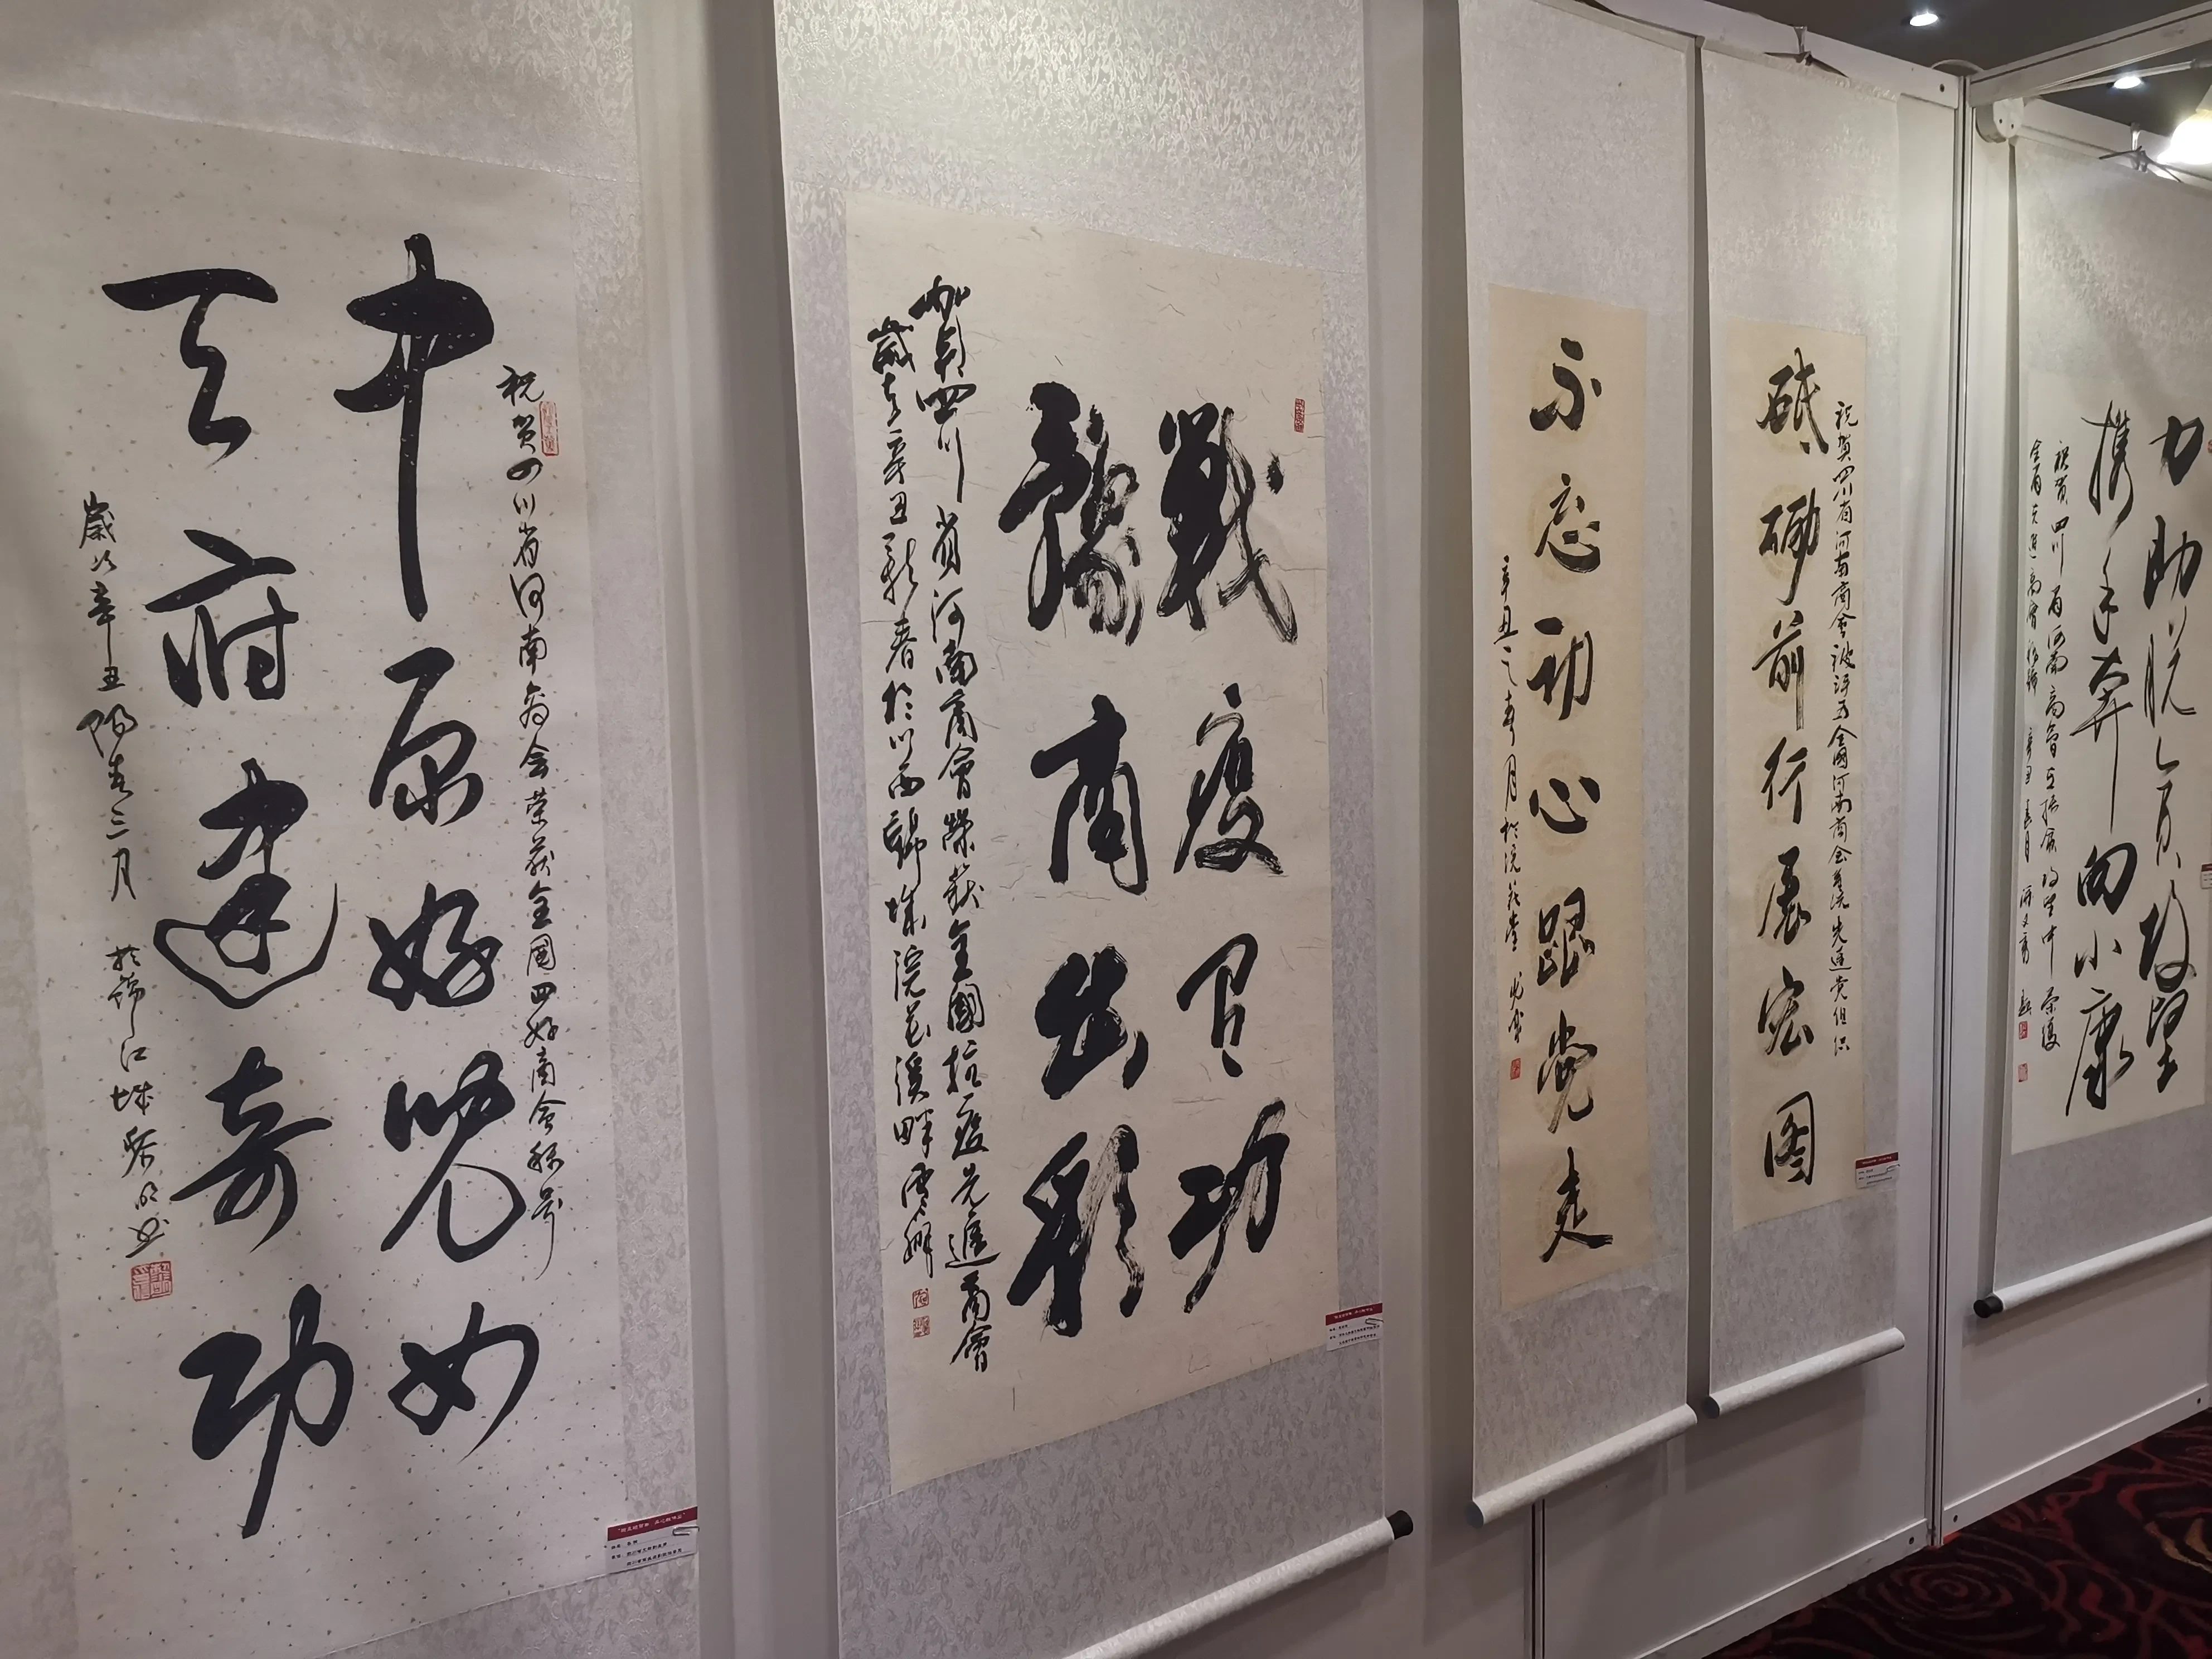 祝贺四川省河南商会荣获全国四好商会称号
中原好儿女
天府建奇功
岁次辛丑阳春三月於锦江城
戰疫有功
豫商出彩
賀四川省河南商會榮获全國抗疫先進商會
歲在辛丑新春於川西錦城浣花溪畔
不忘初心跟党走
辛丑之春月於浣花堂
祝贺四川省河南商会被评为全国河南商会系统先进党组织
砥砺前行展宏图
力助脱贫攻坚
携手奔向小康
祝贺四川省河南商會在振贫攻坚中荣获
全国先進商會称號
辛丑春月